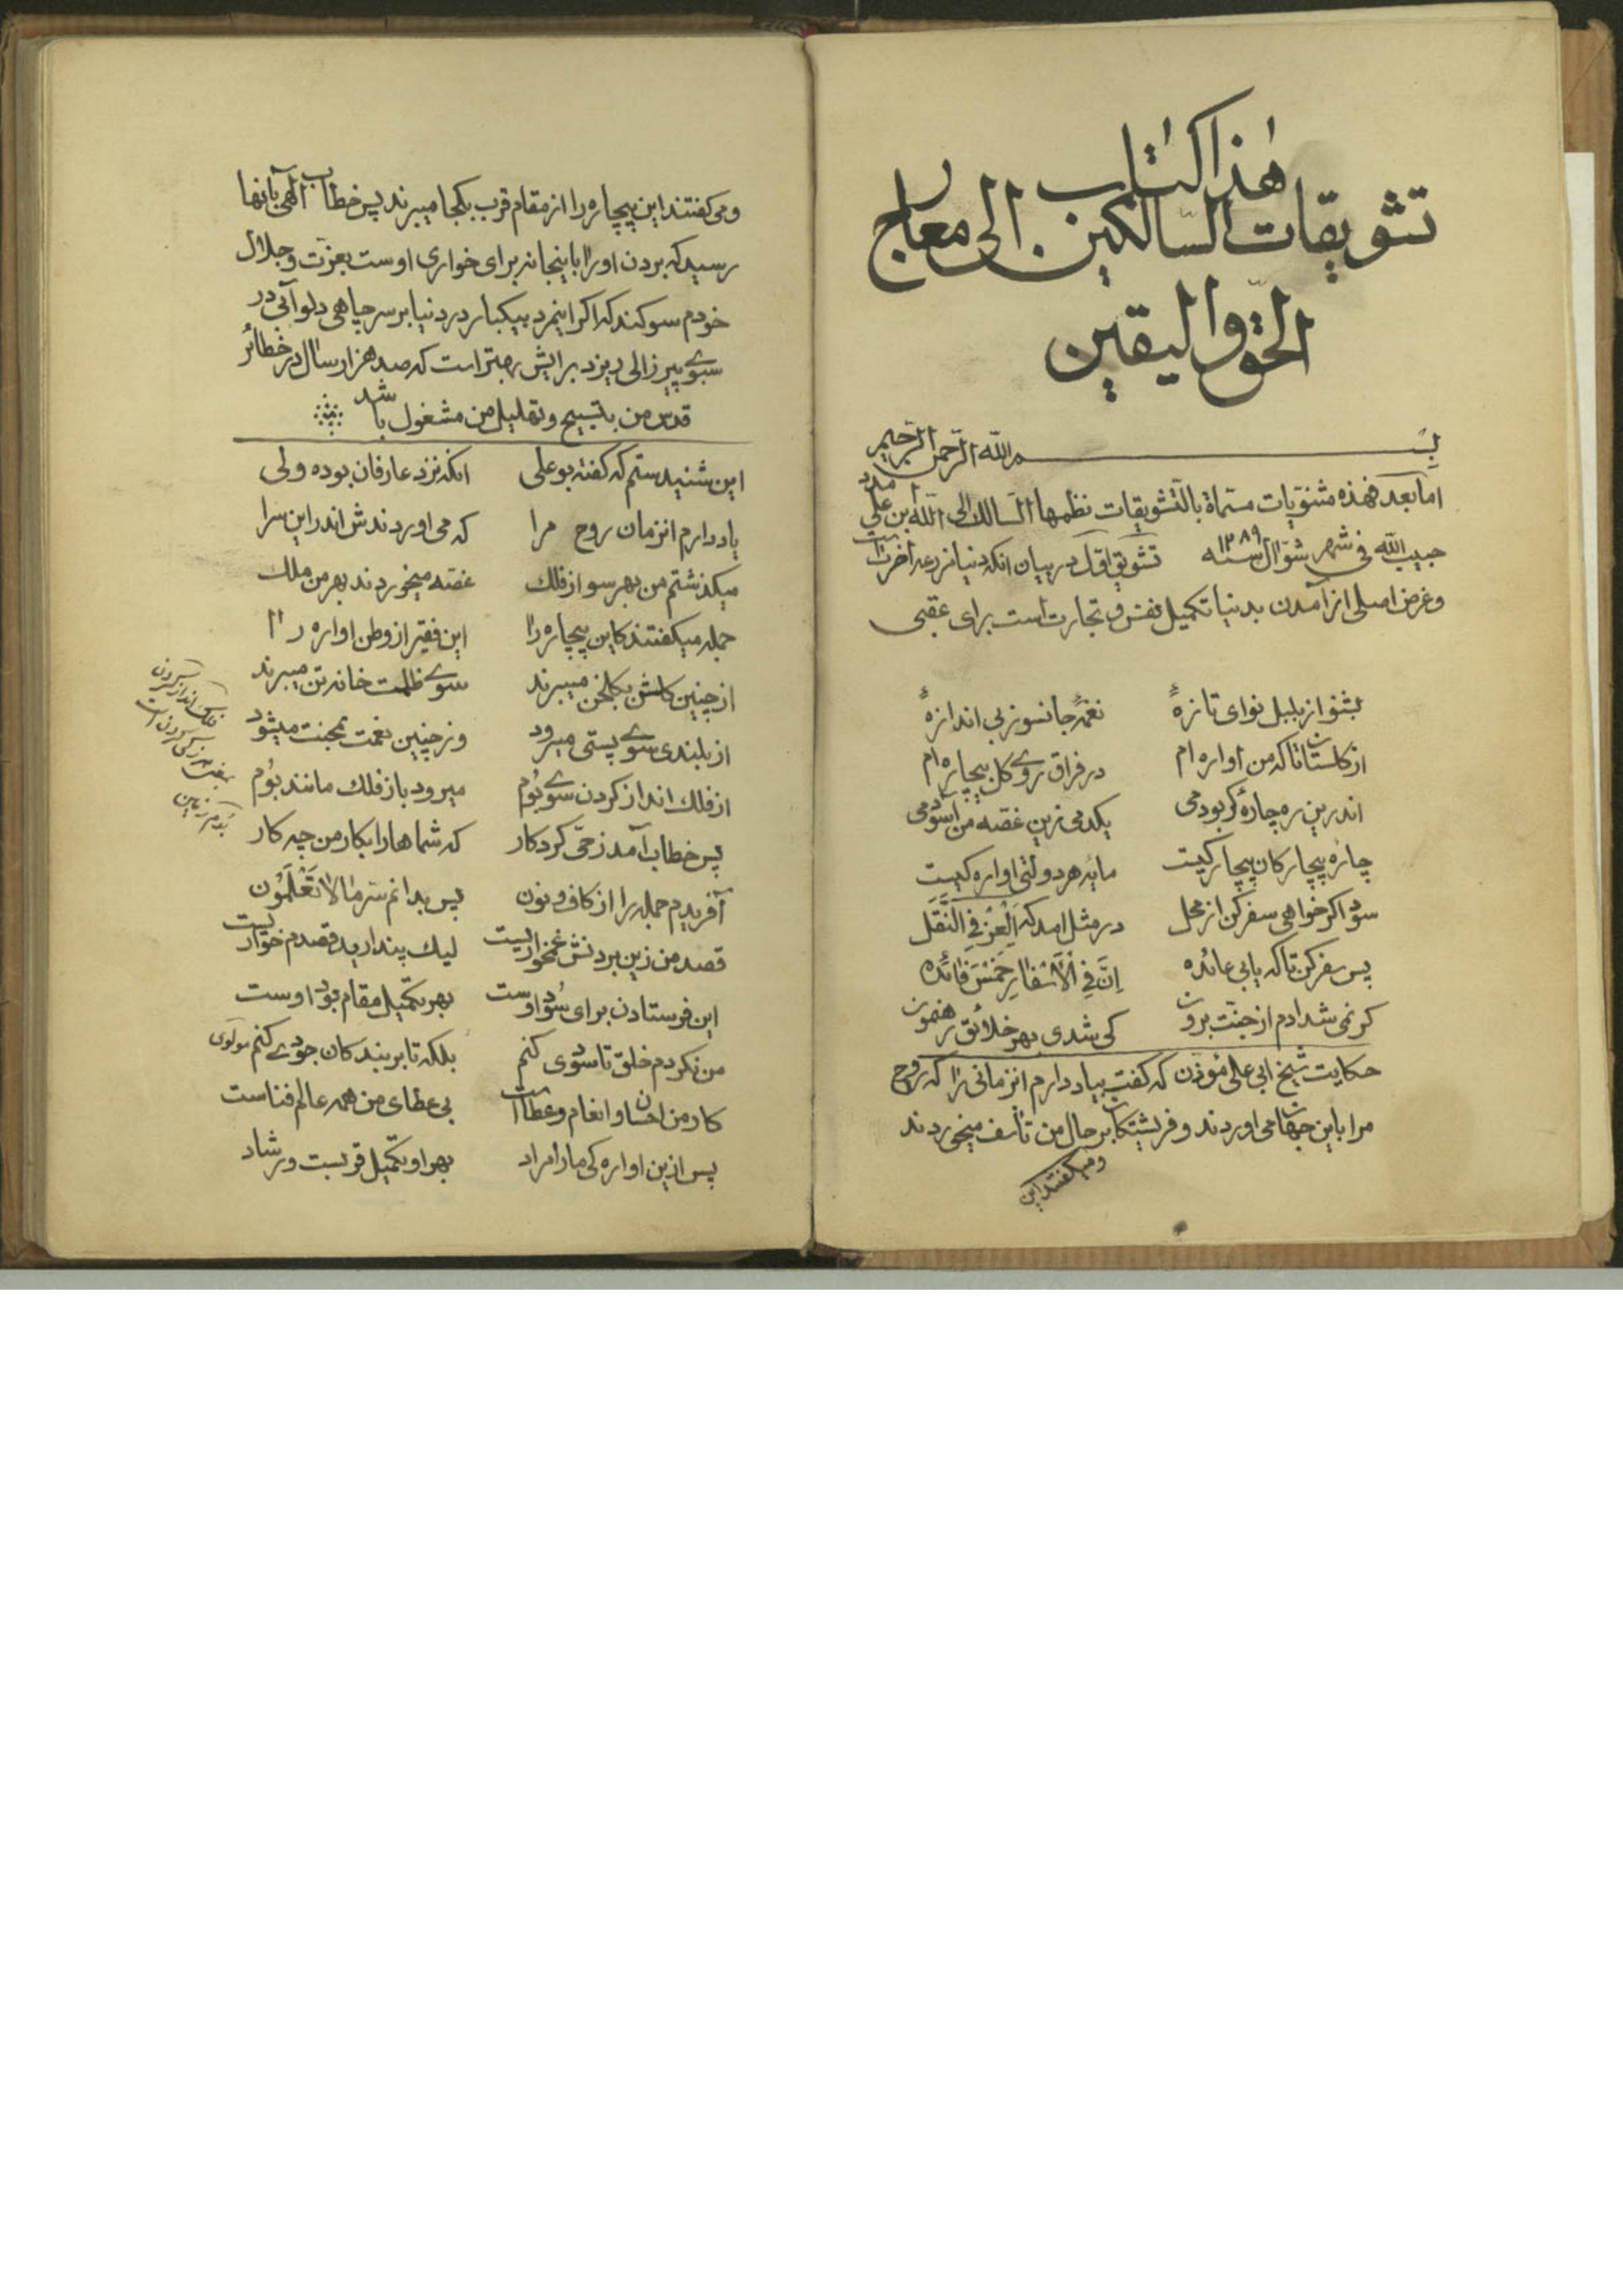 هذا کتاب
تشویقات السّالکین الی معارج
الحقّ والیقین
بسم الله الرّحمن الرّحیم
امّا بعد فهذه مثنویّات مسمّاة بالتّشویقات نظمها السّالك الی الله ابن علی مدد
حبیب الله فی شهر شوّال سنه ۱۳۸۹ تشویق اوّل در بیان انکه دنیا مزرعه آخرت است
وغرض اصلی از آمدن بدنیا تکمیل نفس و تجارت است برای عقبی
بشنو از بلبل نوای تازهٔ نغمهٔ جانسوز بی اندازهٔ
از کلستان تا که من اواره ام در فراق روی کل بیچاره ام
اندرین ره چارهٔ کر بودمی یکدمی زین غصّه من آسودمی
چارهٔ بیچارکان بیچارکیست مایهٔ هر دولتی اوارکیست
سود اکر خواهی سفر کن از محل در مثل امد که اَلْعِزُ فِی النَّقَل
پس سفر کن تا که یابی عائده اِنَّ فِی الْاَسْفارِ خَمْسَ فائده
کر نمی شد ادم از جنّت برون کی شدی بهر خلائق رهنمون
حکایت شیخ ابی علی مؤذن که کفت بیاد دارم انزمانی را که روح
مرا باین جهان می اوردند و فریشتکان بر حال من تأسف میخوردند
ومیکفتند این
ومی کفتند این بیچاره را از مقام قرب بکجا میبرند پس خطاب الهی بانها
رسید که بردن او را باینجا نه برای خواری اوست بعزّت وجلال
خودم سوکند که اکر اینمرد بیکبار در دنیا بر سر چاهی دلو آبی در
سبوی پیر زالی ریزد برایش بهتر است که صد هزار سال در خطائر
قدس من بتسبیح وتهلیل من مشغول باشد
این شنیدستم که کفته بو علی انکه نزد عارفان بوده ولی
یاد دارم انزمان روح مرا که می اوردندش اندر این سرا
میکذشتم من بهر سو از فلك غصّه میخوردند بهر من ملك
جمله میکفتند کاین بیچاره را این فقیر از وطن اواره را
از چنین کلشن بکلخن میبرند سوی ظلمت خانه تن میبرند
از بلندی سوی پستی میرود وز چنین نعمت بمحنت میشود
از فلك انداز کردن سوی بُوم میرود باز فلك مانند بُوم
پس خطاب آمد ز حیّ کردکار که شماها را بکار من چه کار
آفریدم جمله را از کاف و نون پس بدانم سّر ما لا تَعْلَمُون
قصد من زین بردنش غمخواریست لیك پندارید قصدم خواریست
این فرستادن برای سُود اوست بهر تکمیل مقام بود اوست
من نکردم خلق تا سودی کنم بلکه تا بر بندکان جودی کنم مولوی
کار من احسان و انعام و عطاست بی عطای من همه عالم فناست
پس ازین اواره کی ما را مراد بهر او تکمیل قربست و رشاد